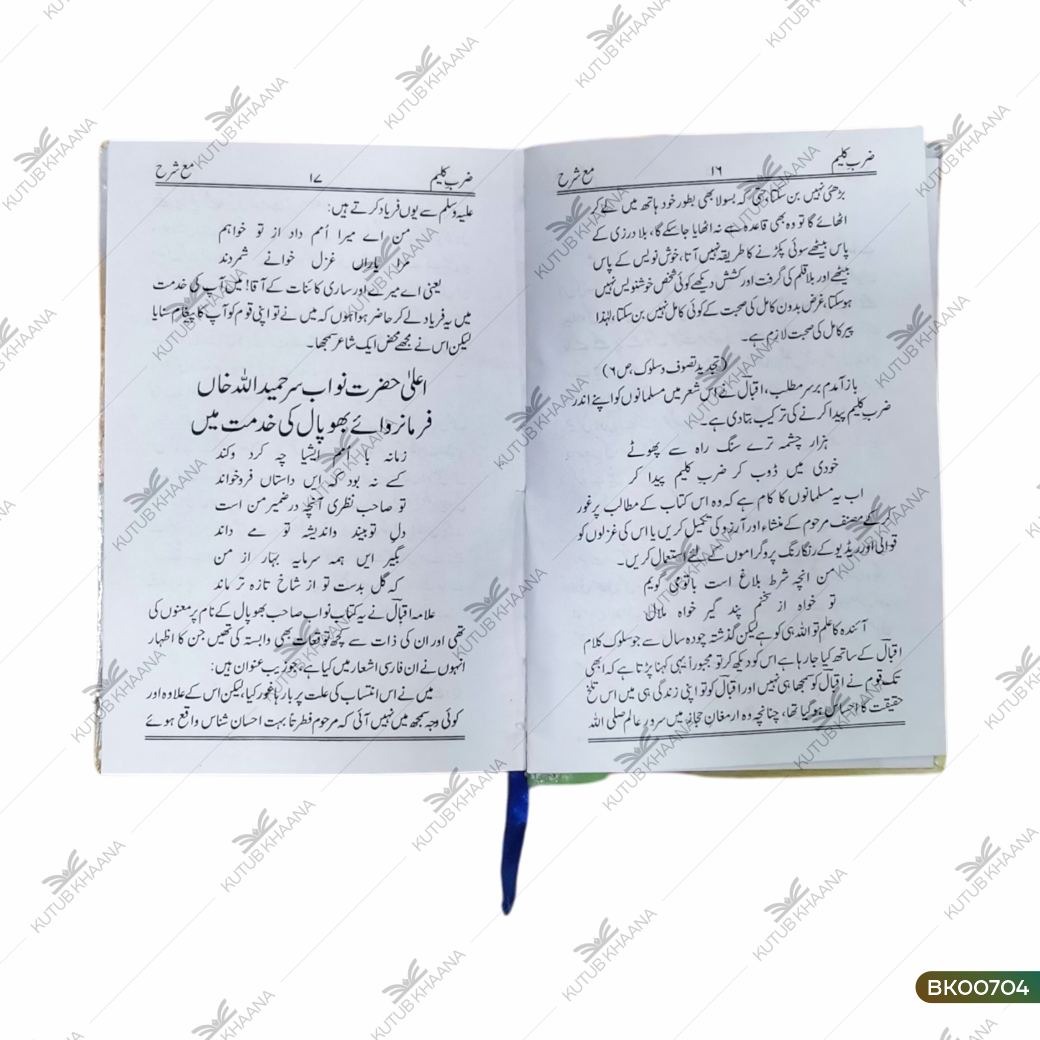 ضرب کلیم ۱۶ مع شرح
بڑھئی نہیں بن سکتا، حتی کہ بسولا بھی بطور خود ہاتھ میں لے کر
اٹھائے گا تو وہ بھی قاعدہ سے نہ اٹھایا جا سکے گا، بلا درزی کے
پاس بیٹھے سوئی پکڑنے کا طریقہ نہیں آتا، خوش نویس کے پاس
بیٹھے اور بلا قلم کی گرفت اور کشش دیکھے کوئی شخص خوشنویس نہیں
ہوسکتا، غرض بدون کامل کی صحبت کے کوئی کامل نہیں بن سکتا، لہٰذا
پیر کامل کی صحبت لازم ہے۔
(تجدید تصوف و سلوک، ص ۶)
باز آمدم برسر مطلب، اقبالؔ نے اس شعر میں مسلمانوں کو اپنے اندر
ضرب کلیم پیدا کرنے کی ترکیب بتا دی ہے۔
ہزار چشمہ ترے سنگ راہ سے پھوٹے
خودی میں ڈوب کر ضرب کلیم پیدا کر
اب یہ مسلمانوں کا کام ہے کہ وہ اس کتاب کے مطالب پر غور
کرکے مصنف مرحوم کے منشاء اور آرزو کی تکمیل کریں یا اس کی غزلوں کو
قوالی اور ریڈیو کے رنگارنگ پروگراموں کے لئے استعمال کریں۔
من انچہ شرط بلاغ است باتومی گویم
تو خواہ از سخنم پند گیر خواہ ملال
آئندہ کا علم تو اللہ ہی کو ہے لیکن گذشتہ چودہ سال سے جو سلوک کلام
اقبالؔ کے ساتھ کیا جا رہا ہے اس کو دیکھ کر تو مجبوراً یہی کہنا پڑتا ہے کہ ابھی
تک قوم نے اقبالؔ کو سمجھا ہی نہیں اور اقبالؔ کو تو اپنی زندگی ہی میں اس تلخ
حقیقت کا احساس ہو گیا تھا، چنانچہ وہ ارمغان حجاز میں سرور عالم صلی اللہ
ضرب کلیم ۱۷ مع شرح
علیہ وسلم سے یوں فریاد کرتے ہیں:
من اے میرا اُمم داد از تو خواہم
مرا یاراں غزل خوانے شمردند
یعنی اے میرے اور ساری کائنات کے آقا! میں آپ کی خدمت
میں یہ فریاد لے کر حاضر ہوا ہوں کہ میں نے تو اپنی قوم کو آپ کا پیغام سنایا
لیکن اس نے مجھے محض ایک شاعر سمجھا۔
اعلیٰ حضرت نواب سر حمید اللہ خاں
فرمانروائے بھوپال کی خدمت میں
زمانہ با اُمم ایشیا چہ کرد و کند
کسے نہ بود کہ ایں داستاں فروخواند
تو صاحب نظری آنچہ در ضمیر من است
دل تو بیند و اندیشہ تو مے داند
بگیر ایں ہمہ سرمایہ بہار از من
کہ گل بدست تو از شاخ تازہ تر ماند
علامہ اقبالؔ نے یہ کتاب نواب صاحب بھوپال کے نام پر معنوں کی
تھی اور ان کی ذات سے کچھ توقعات بھی وابستہ کی تھیں جن کا اظہار
انہوں نے ان فارسی اشعار میں کیا ہے، جو زیب عنوان ہیں:
میں نے اس انتساب کی علت پر بارہا غور کیا، لیکن اس کے علاوہ اور
کوئی وجہ سمجھ میں نہیں آئی کہ مرحوم فطرتاً بہت احسان شناس واقع ہوئے
KUTUB KHAANA
BK00704